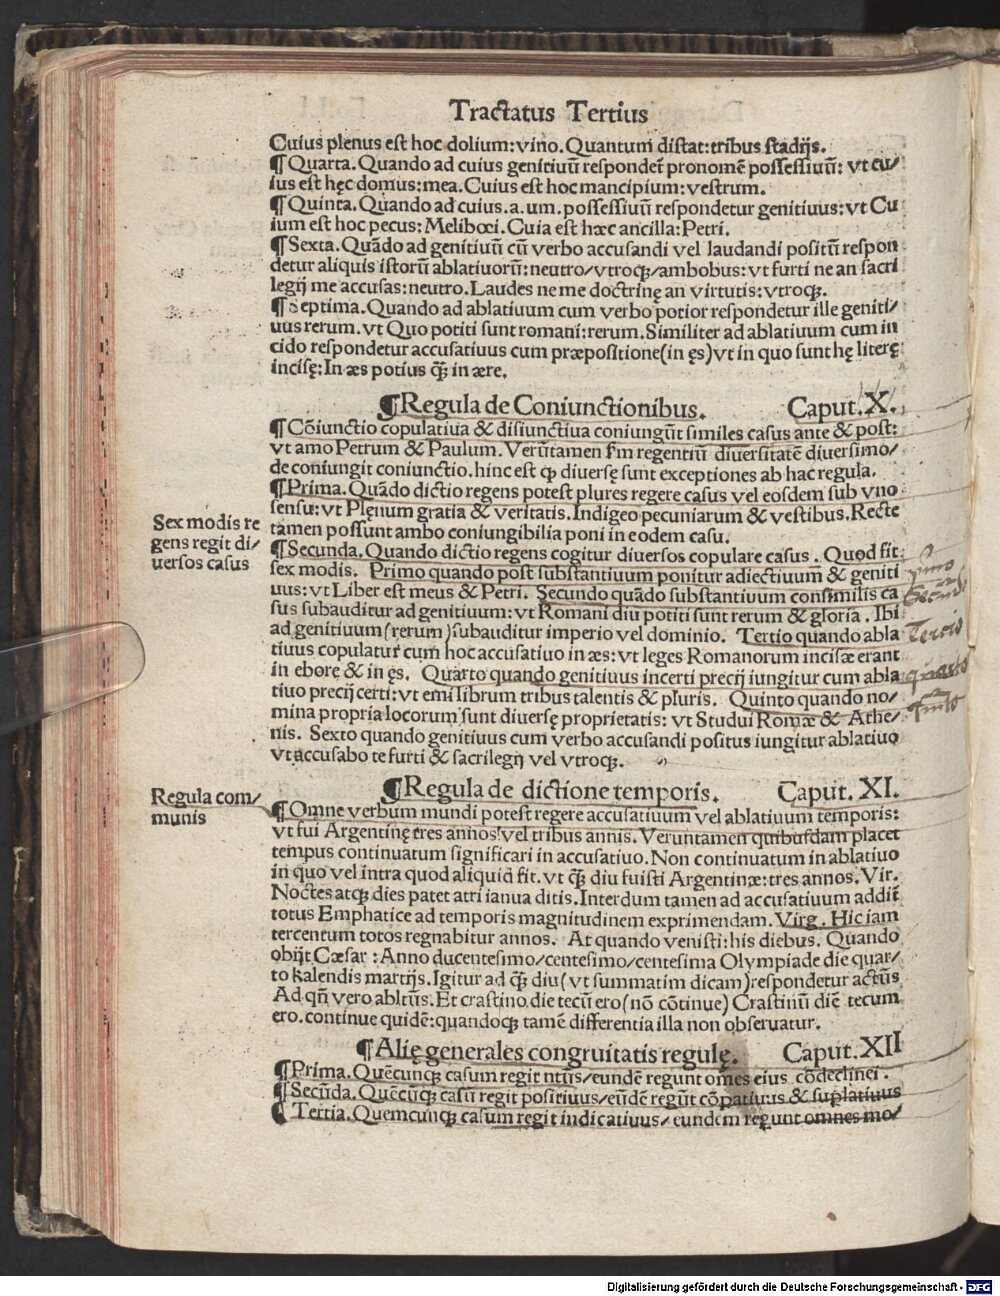 Tractatus Tertius
Cuius plenus est hoc dolium:vino. Quantum distat:tribus stadijs.
¶Quarta. Quando ad cuius genitiuũ respondet̃ pronomẽ possessiuũ: vt cu/
ius est hęc domus:mea. Cuius est hoc mancipium:vestrum.
¶Quinta. Quando ad cuius.a.um.possessiuũ respondetur genitiuus:vt Cu
ium est hoc pecus: Melibœi. Cuia est hæc ancilla:Petri.
¶Sexta. Quãdo ad genitiuũ cũ verbo accusandi vel laudandi positũ respon
detur aliquis istorũ ablatiuorũ:neutro/vtroqꝫ/ambobus:vt furti ne an sacri
legij me accusas:neutro. Laudes ne me doctrinę an virtutis:vtroqꝫ.
¶Septima. Quando ad ablatiuum cum verbo potior respondetur ille geniti/
uus rerum. vt Quo potiti sunt romani:rerum. Similiter ad ablatiuum cum in
cido respondetur accusatiuus cum præpositione(in ęs)vt in quo sunt hę literę
incisę:In æs potius q̃ꝫ in ære.
¶Regula de Coniunctionibus. Caput.X.
¶Cõiunctio copulatiua & disiunctiua coniungũt similes casus ante & post:
vt amo Petrum & Paulum. Verũtamen fm regentiũ diuersitatẽ diuersimo/
de coniungit coniunctio. hinc est ꝙ diuersę sunt exceptiones ab hac regula.
¶Prima. Quãdo dictio regens potest plures regere casus vel eosdem sub vno
sensu:vt Plęnum gratia & veritatis. Indigeo pecuniarum & vestibus. Recte
tamen possunt ambo coniungibilia poni in eodem casu.
Sex modis re
gens regit di/
uersos casus
¶Secunda. Quando dictio regens cogitur diuersos copulare casus. Quod fit
sex modis. Primo quando post substantiuum ponitur adiectiuum & geniti
uus:vt Liber est meus & Petri. Secundo quãdo substantiuum consimilis ca
sus subauditur ad genitiuum:vt Romani diu potiti sunt rerum & gloria. Ibi
ad genitiuum(rerum)subauditur imperio vel dominio. Tertio quando abla
tiuus copulatur cum hoc accusatiuo in æs:vt leges Romanorum incisæ erant
in eborę & in ęs. Quarto quando genitiuus incerti precij iungitur cum abla
tiuo precij certi:vt emi librum tribus talentis & pluris. Quinto quando no/
mina propria locorum sunt diuersę proprietatis: vt Studui Romæ & Athe/
nis. Sexto quando genitiuus cum verbo accusandi positus iungitur ablatiuo
vt accusabo te furti & sacrilegij vel vtroqꝫ.
primo
Secundo
Tercio
quarto
quinto
¶Regula de dictione temporis. Caput. XI.
Regula com/
munis
¶Omne verbum mundi potest regere accusatiuum vel ablatiuum temporis:
vt fui Argentinę tres annos vel tribus annis. Veruntamen quibusdam placet
tempus continuatum significari in accusatiuo. Non continuatum in ablatiuo
in quo vel intra quod aliquid fit. vt q̃ꝫ diu fuisti Argentinæ:tres annos. Vir.
Noctes atqꝫ dies patet atri ianua ditis. Interdum tamen ad accusatiuum addit̃
totus Emphatice ad temporis magnitudinem exprimendam. Virg. Hic iam
tercentum totos regnabitur annos. At quando venisti:his diebus. Quando
obijt Cæsar:Anno ducentesimo/centesimo/centesima Olympiade die quar/
to kalendis martijs. Igitur ad q̃ꝫ diu(vt summatim dicam)respondetur actũs
Ad qñ vero abltũs. Et crastino die tecũ ero(nõ cõtinue)Crastinũ diẽ tecum
ero.continue quidẽ:quandoqꝫ tamẽ differentia illa non obseruatur.
¶Alię generales congruitatis regulę. Caput.XII
¶Prima. Quẽcunqꝫ casum regit ntũs/eundẽ regunt omẽs eius cõdeclinei.
¶Secũda. Quẽcũqꝫ casũ regit positiuus/eũdẽ regũt cõpatiuus & suplatiuus
¶Tertia. Quemcunqꝫ casum regit indicatiuus/eundem regunt omnes mo/
Digitalisierung gefördert durch die Deutsche Forschungsgemeinschaft - DFG